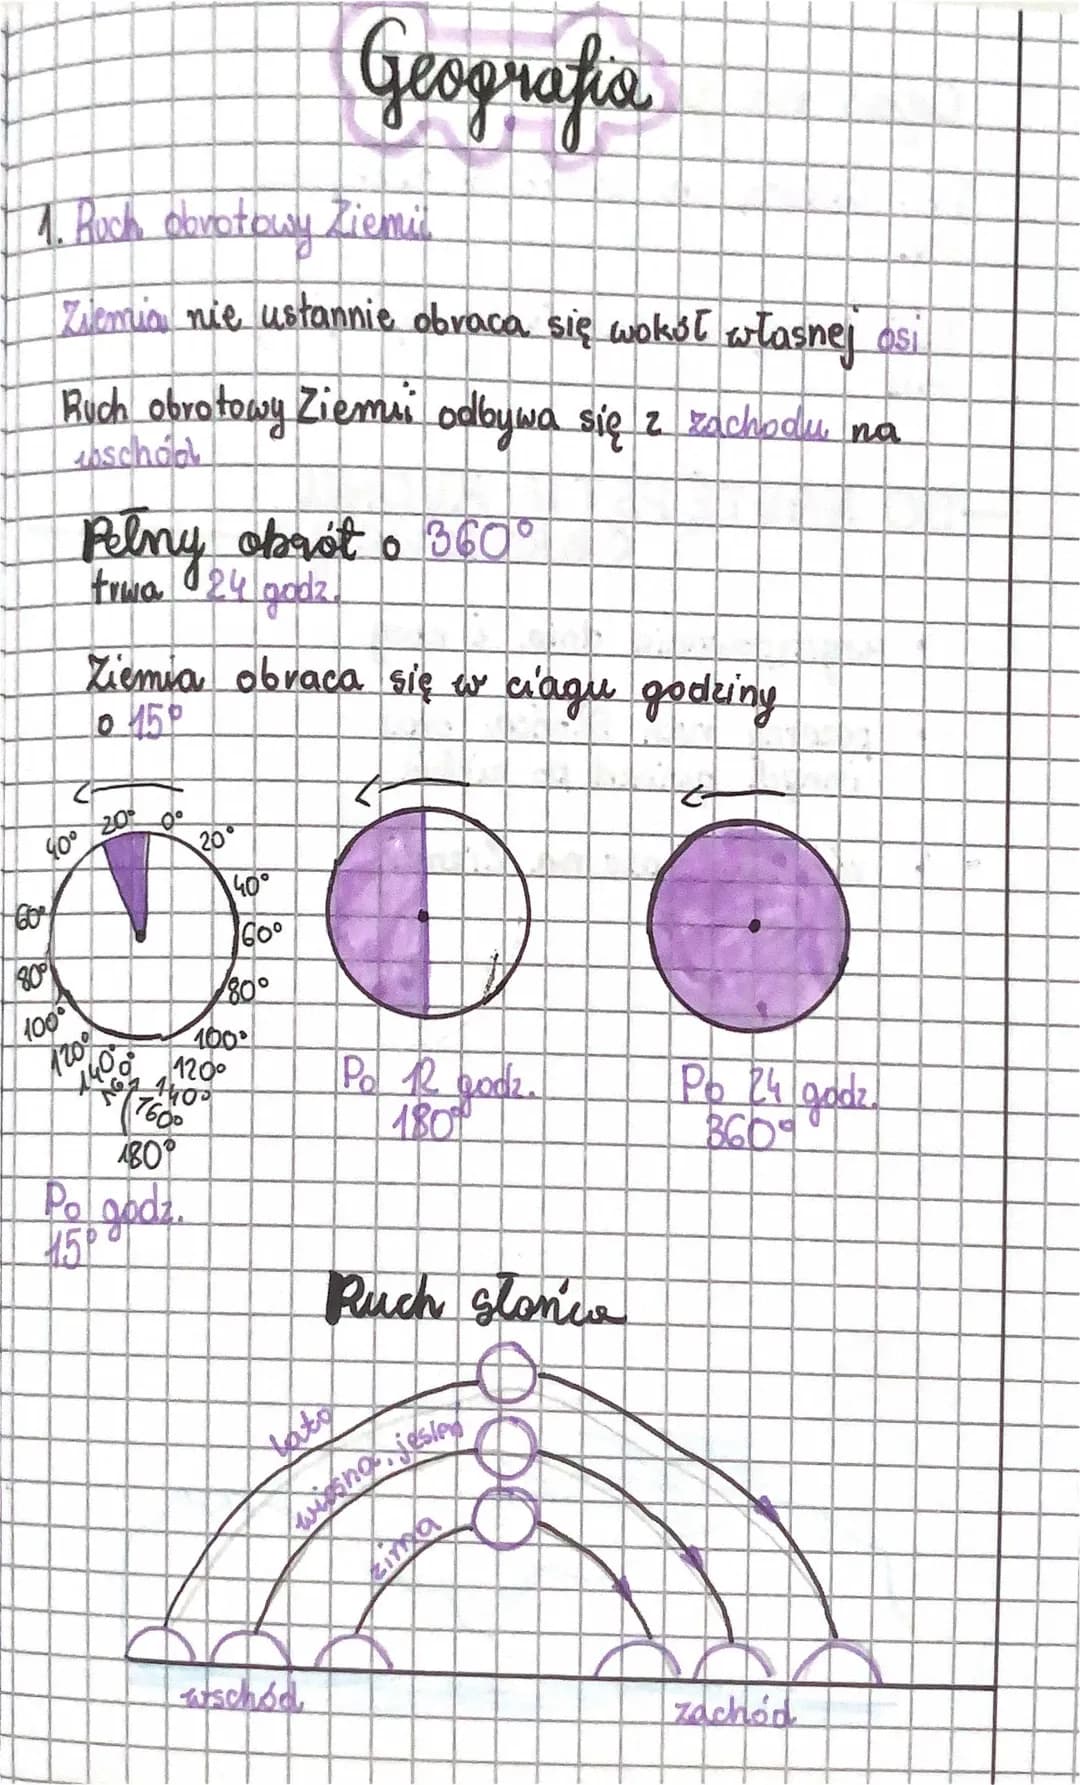 Geografia
1. Ruch obrotowy Ziemii
Ziemia nie ustannie obraca się wokół własnej osi
Ruch obrotowy Ziemii odbywa się z zachodu na
wschód
Pełny obrót o 360°
trwa 24 godz.
Ziemia obraca się w ciągu godziny
o 15°
40° 20° 0° 20°
40°
60° 60°
80° 80°
100° 100°
120° 120°
140° 140°
160°
180°
Po godz.
15°
Po 12 godz.
180°
Po 24 godz.
360°
Ruch słońca
lato
wiosna, jesień
zima
wschód
zachód